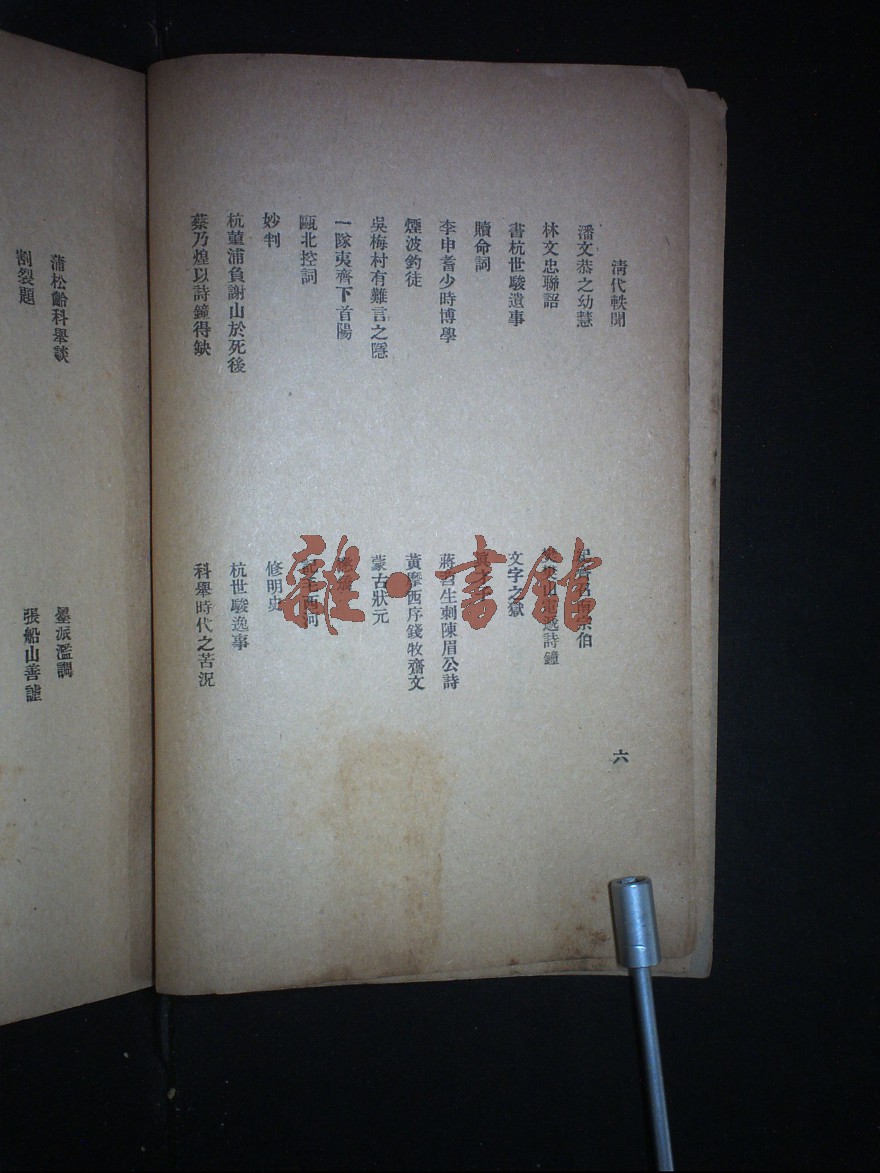 清代軼聞
六
潘文恭之幼慧
林文忠聯語
書杭世駿遺事
贖命詞
李申耆少時博學
煙波釣徒
吳梅村有難言之隱
一隊夷齊下首陽
甌北控詞
妙判
杭菫浦負謝山於死後
蔡乃煌以詩鐘得缺
宗伯
詩鐘
文字之獄
真才子
蔣苕生刺陳眉公詩
黃摩西序錢牧齋文
蒙古狀元
記毛西河
修明史
杭世駿逸事
科舉時代之苦況
蒲松齡科舉談
割裂題
墨派濫調
張船山善謔
雜·書館